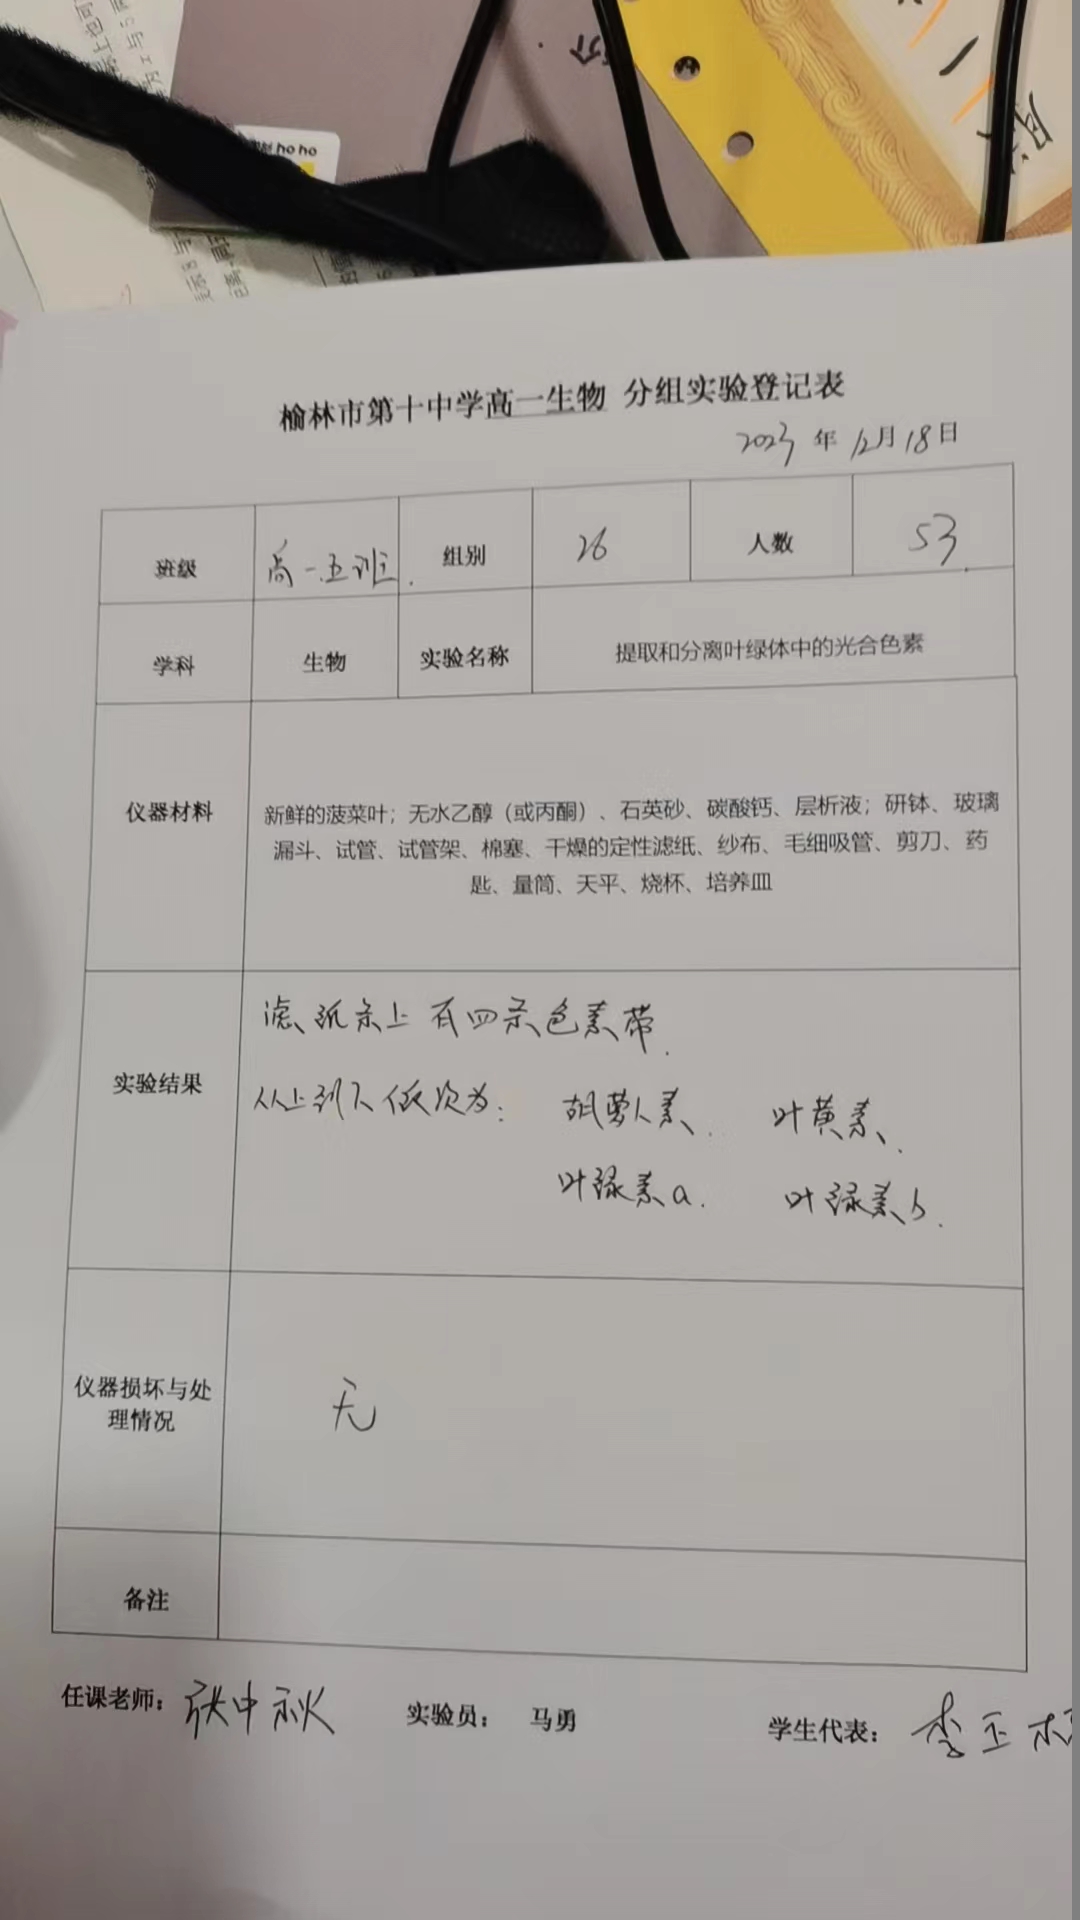 ho ho
榆林市第十中学高一生物 分组实验登记表
2023 年 12月 18日
班级 高一五班. 组别 26 人数 53
学科 生物 实验名称 提取和分离叶绿体中的光合色素
仪器材料
新鲜的菠菜叶；无水乙醇（或丙酮）、石英砂、碳酸钙、层析液；研钵、玻璃
漏斗、试管、试管架、棉塞、干燥的定性滤纸、纱布、毛细吸管、剪刀、药
匙、量筒、天平、烧杯、培养皿
实验结果
滤纸条上有四条色素带.
从上到下依次为： 胡萝卜素. 叶黄素.
叶绿素a. 叶绿素b.
仪器损坏与处
理情况
无
备注
任课老师： 张中秋 实验员： 马勇 学生代表： 李玉